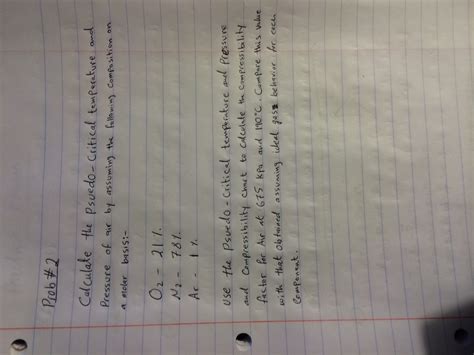 Prob #2
Calculate the Psuedo-Critical temperature and
Pressure of air by assuming the following composition on
a molar basis:-
O2 - 21%
N2 - 78%
Ar - 1%
use the Psuedo-Critical temperature and Pressure
and Compressibility Chart to Calculate the Compressibility
factor for Air at 675 kpa and 190°C. Compare this value
with that obtained assuming ideal gas behavior for each
Component.